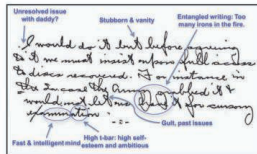 Unresolved issue
with daddy?
Stubborn & vanity
Entangled writing: Too
many irons in the fire.
I would do it but before
it we must insist upon full access
to discs recovered. For instance in
the case the Army grabbed it &
would not let me have it for cursory
examination.
Guilt, past issues
Fast & intelligent mind
High t-bar: high self-
esteem and ambitious